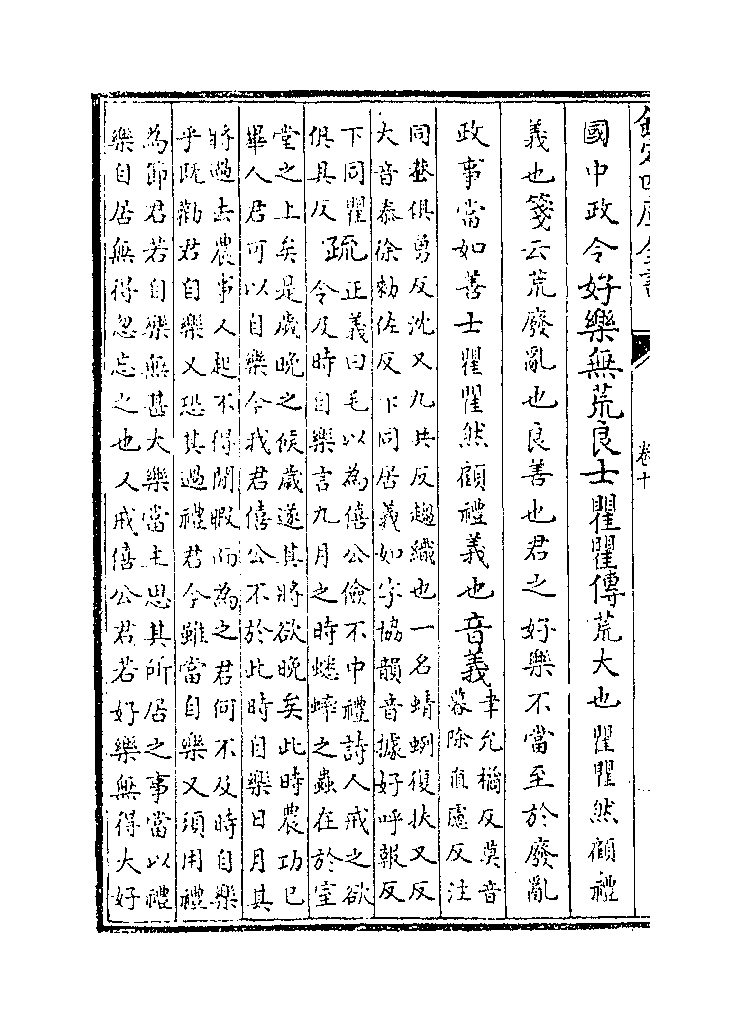 欽定四庫全書
卷十
國中政令好樂無荒良士瞿瞿傳荒大也瞿瞿然顧禮
義也箋云荒廢亂也良善也君之好樂不當至於廢亂
政事當如善士瞿瞿然顧禮義也音義
聿允橘反莫音
暮除直慮反注
同蛬俱勇反沈又九共反趨織也一名蜻蛚復扶又反
大音泰徐勑佐反下同居義如字協韻音據好呼報反
下同瞿
俱具反
疏
正義曰毛以為僖公儉不中禮詩人戒之欲
令及時自樂言九月之時蟋蟀之蟲在於室
堂之上矣是歲晚之候歲遂其將欲晚矣此時農功已
畢人君可以自樂今我君僖公不於此時自樂日月其
將過去農事又起不得閒暇而為之君何不及時自樂
乎既勸君自樂又恐其過禮君今雖當自樂又須用禮
為節君若自樂無甚大樂當主思其所居之事當以禮
樂自居無得忽忘之也又戒僖公君若好樂無得大好